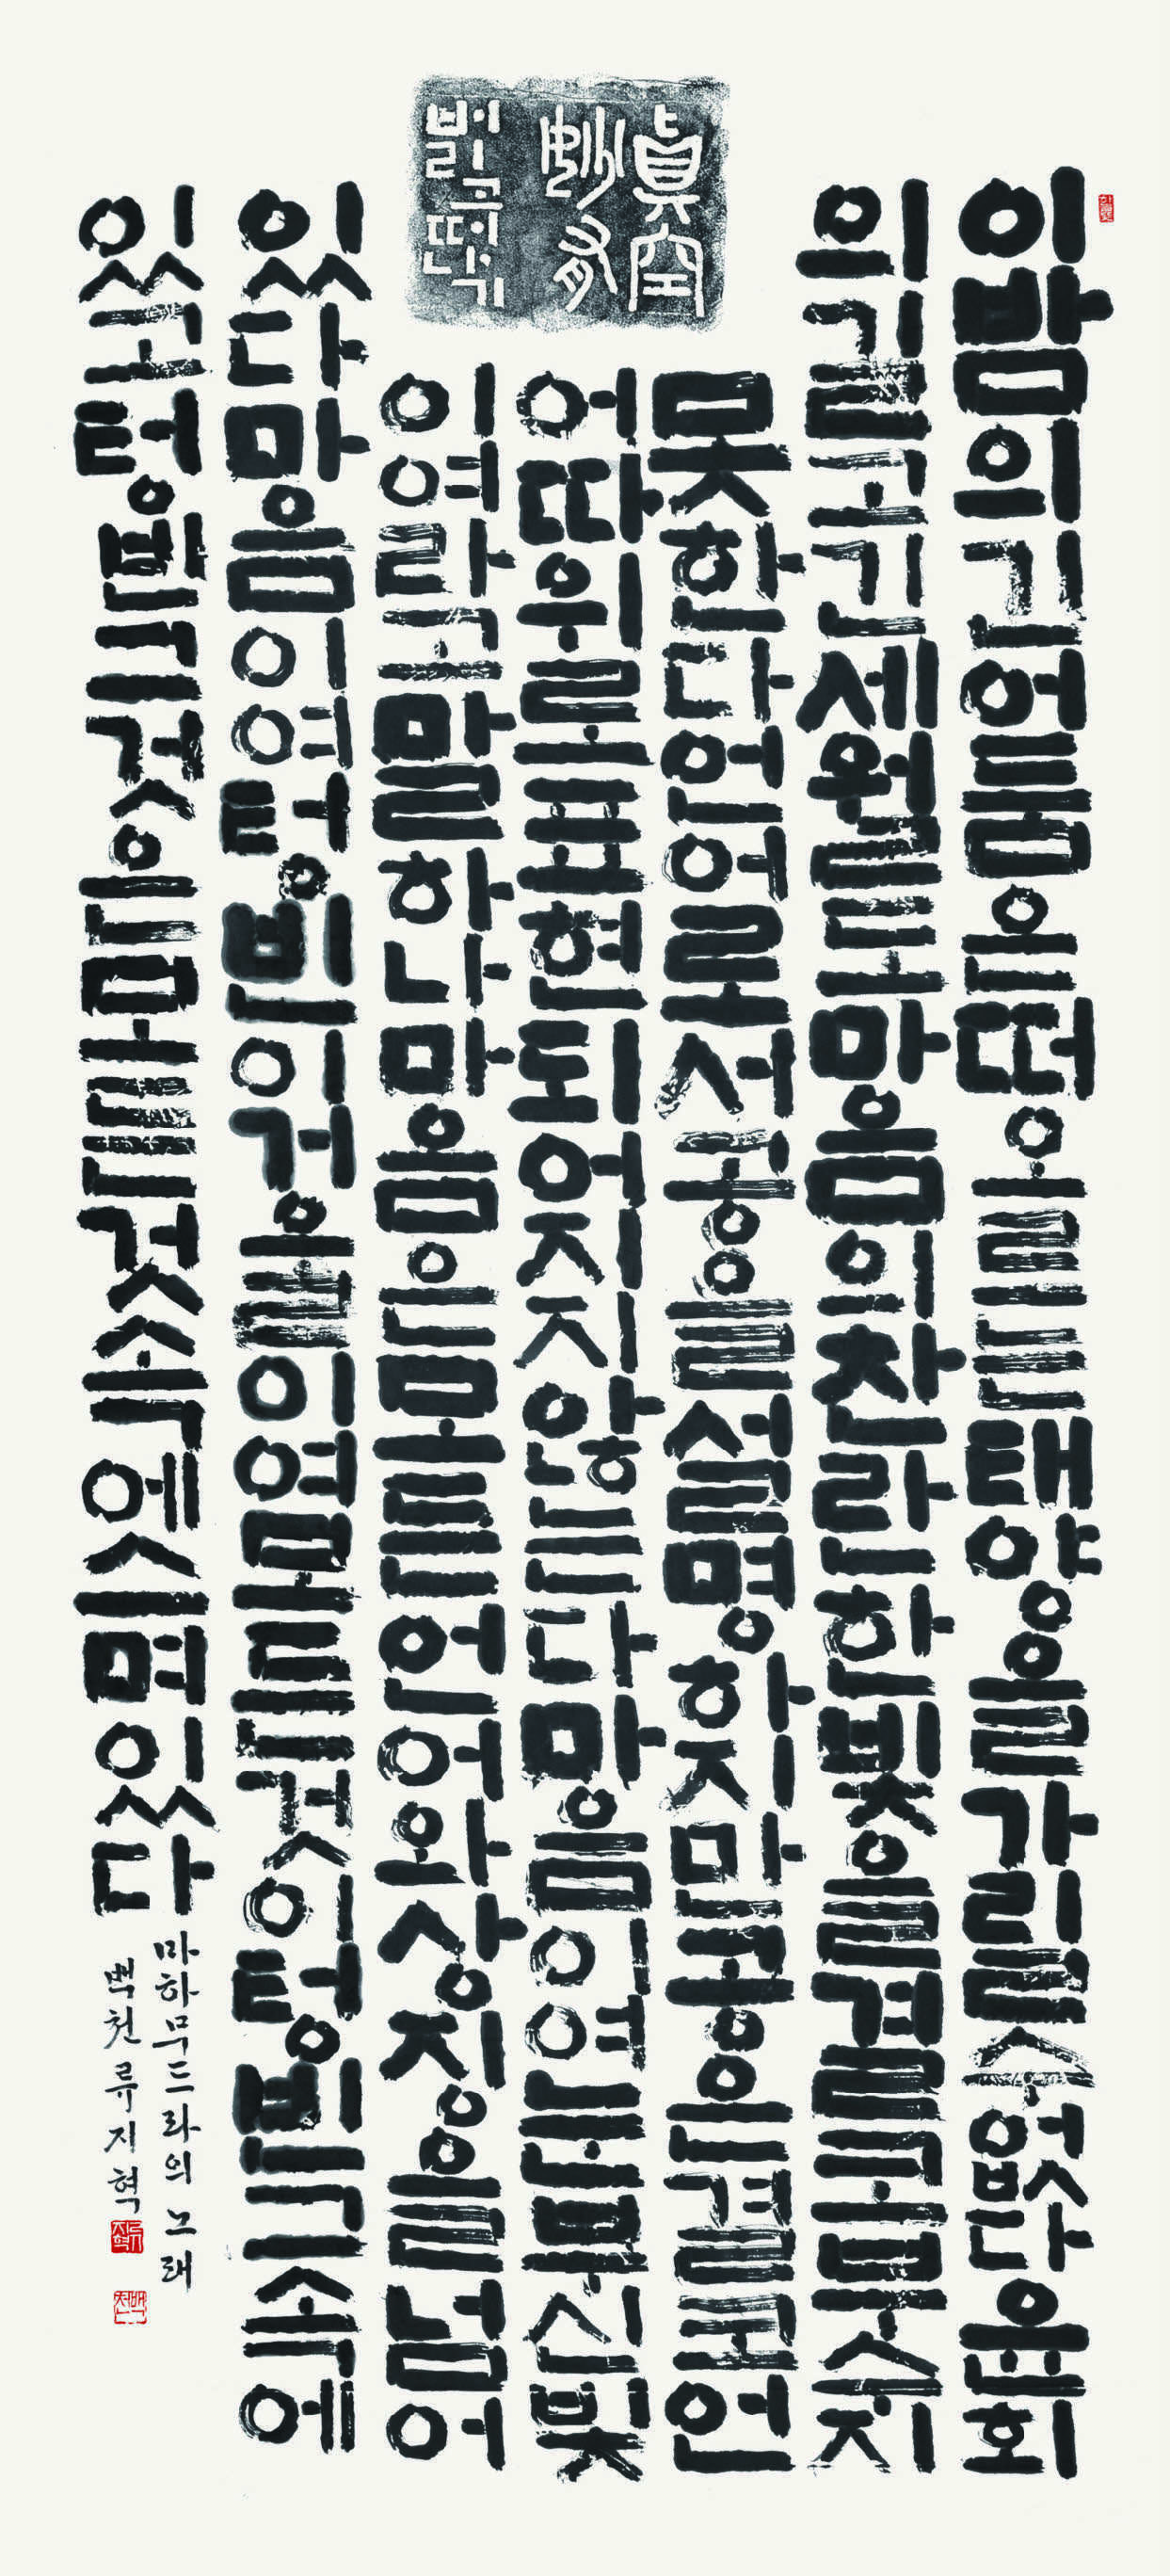 眞空
妙有
이밤의긴어둠은떠오르는태양을가릴수없다윤회
의길고긴세월도마음의찬란한빛을결코부수지
못한다언어로서공을설명하지만공은결코언
어따위로표현되어지지않는다마음이여눈부신빛
이여라고말하나마음은모든언어와상징을넘어
있다마음이여텅빈이거울이여모든것이텅빈그속에
있고텅빈그것은모든것속에스며있다
마하무드라의 노래
백천 류지혁